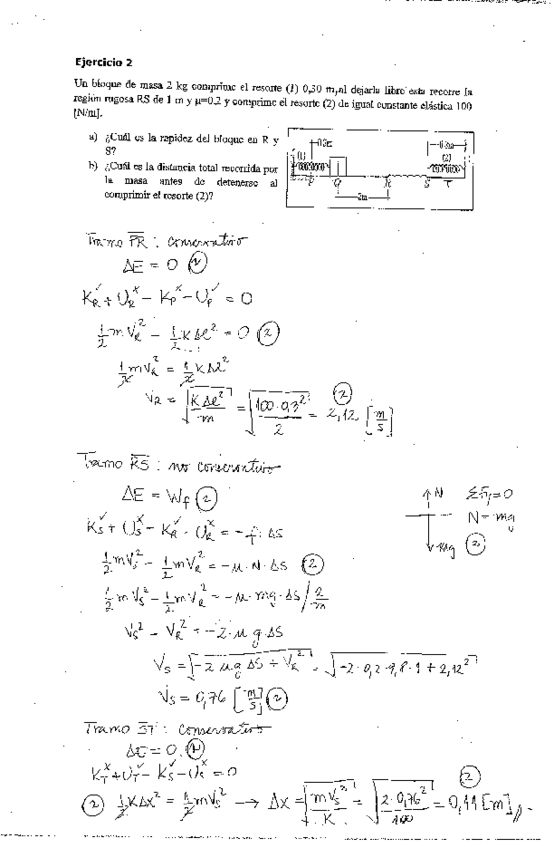 Ejercicio 2
Un bloque de masa 2 kg comprime el resorte (1) 0,30 m, al dejarlo libre este recorre la
región rugosa RS de 1 m y μ=0.2 y comprime el resorte (2) de igual constante elástica 100
[N/m].
a) ¿Cuál es la rapidez del bloque en R y
S?
b) ¿Cuál es la distancia total recorrida por
la masa antes de detenerse al
comprimir el resorte (2)?
(1)
(2)
P Q R S T
Tramo PR : conservativo
ΔE = 0 (2)
K_R + U_R - K_P - U_P = 0
1/2 m V_R² - 1/2 K Δl² = 0 (2)
1/2 m V_R² = 1/2 K Δl²
V_R = √(K Δl²/m) = √(100·0,3²/2) = 2,12 [m/s] (2)
Tramo RS : no conservativo
ΔE = W_f (2)
↑N ΣF_y = 0
N = mg
↓mg (2)
K_S + U_S - K_R - U_R = -f · ΔS
1/2 m V_S² - 1/2 m V_R² = -μ · N · ΔS (2)
1/2 m V_S² - 1/2 m V_R² = -μ · mg · ΔS / 2/m
V_S² - V_R² = -2 · μ g · ΔS
V_S = √(-2 μ g ΔS + V_R²) = √(-2 · 0,2 · 9,8 · 1 + 2,12²)
V_S = 0,76 [m/s] (2)
Tramo ST : conservativo
ΔE = 0 (2)
K_T + U_T - K_S - U_S = 0
(2) 1/2 K Δx² = 1/2 m V_S² → Δx = √(m V_S²/K) = √(2 · 0,76²/100) = 0,11 [m] (2)